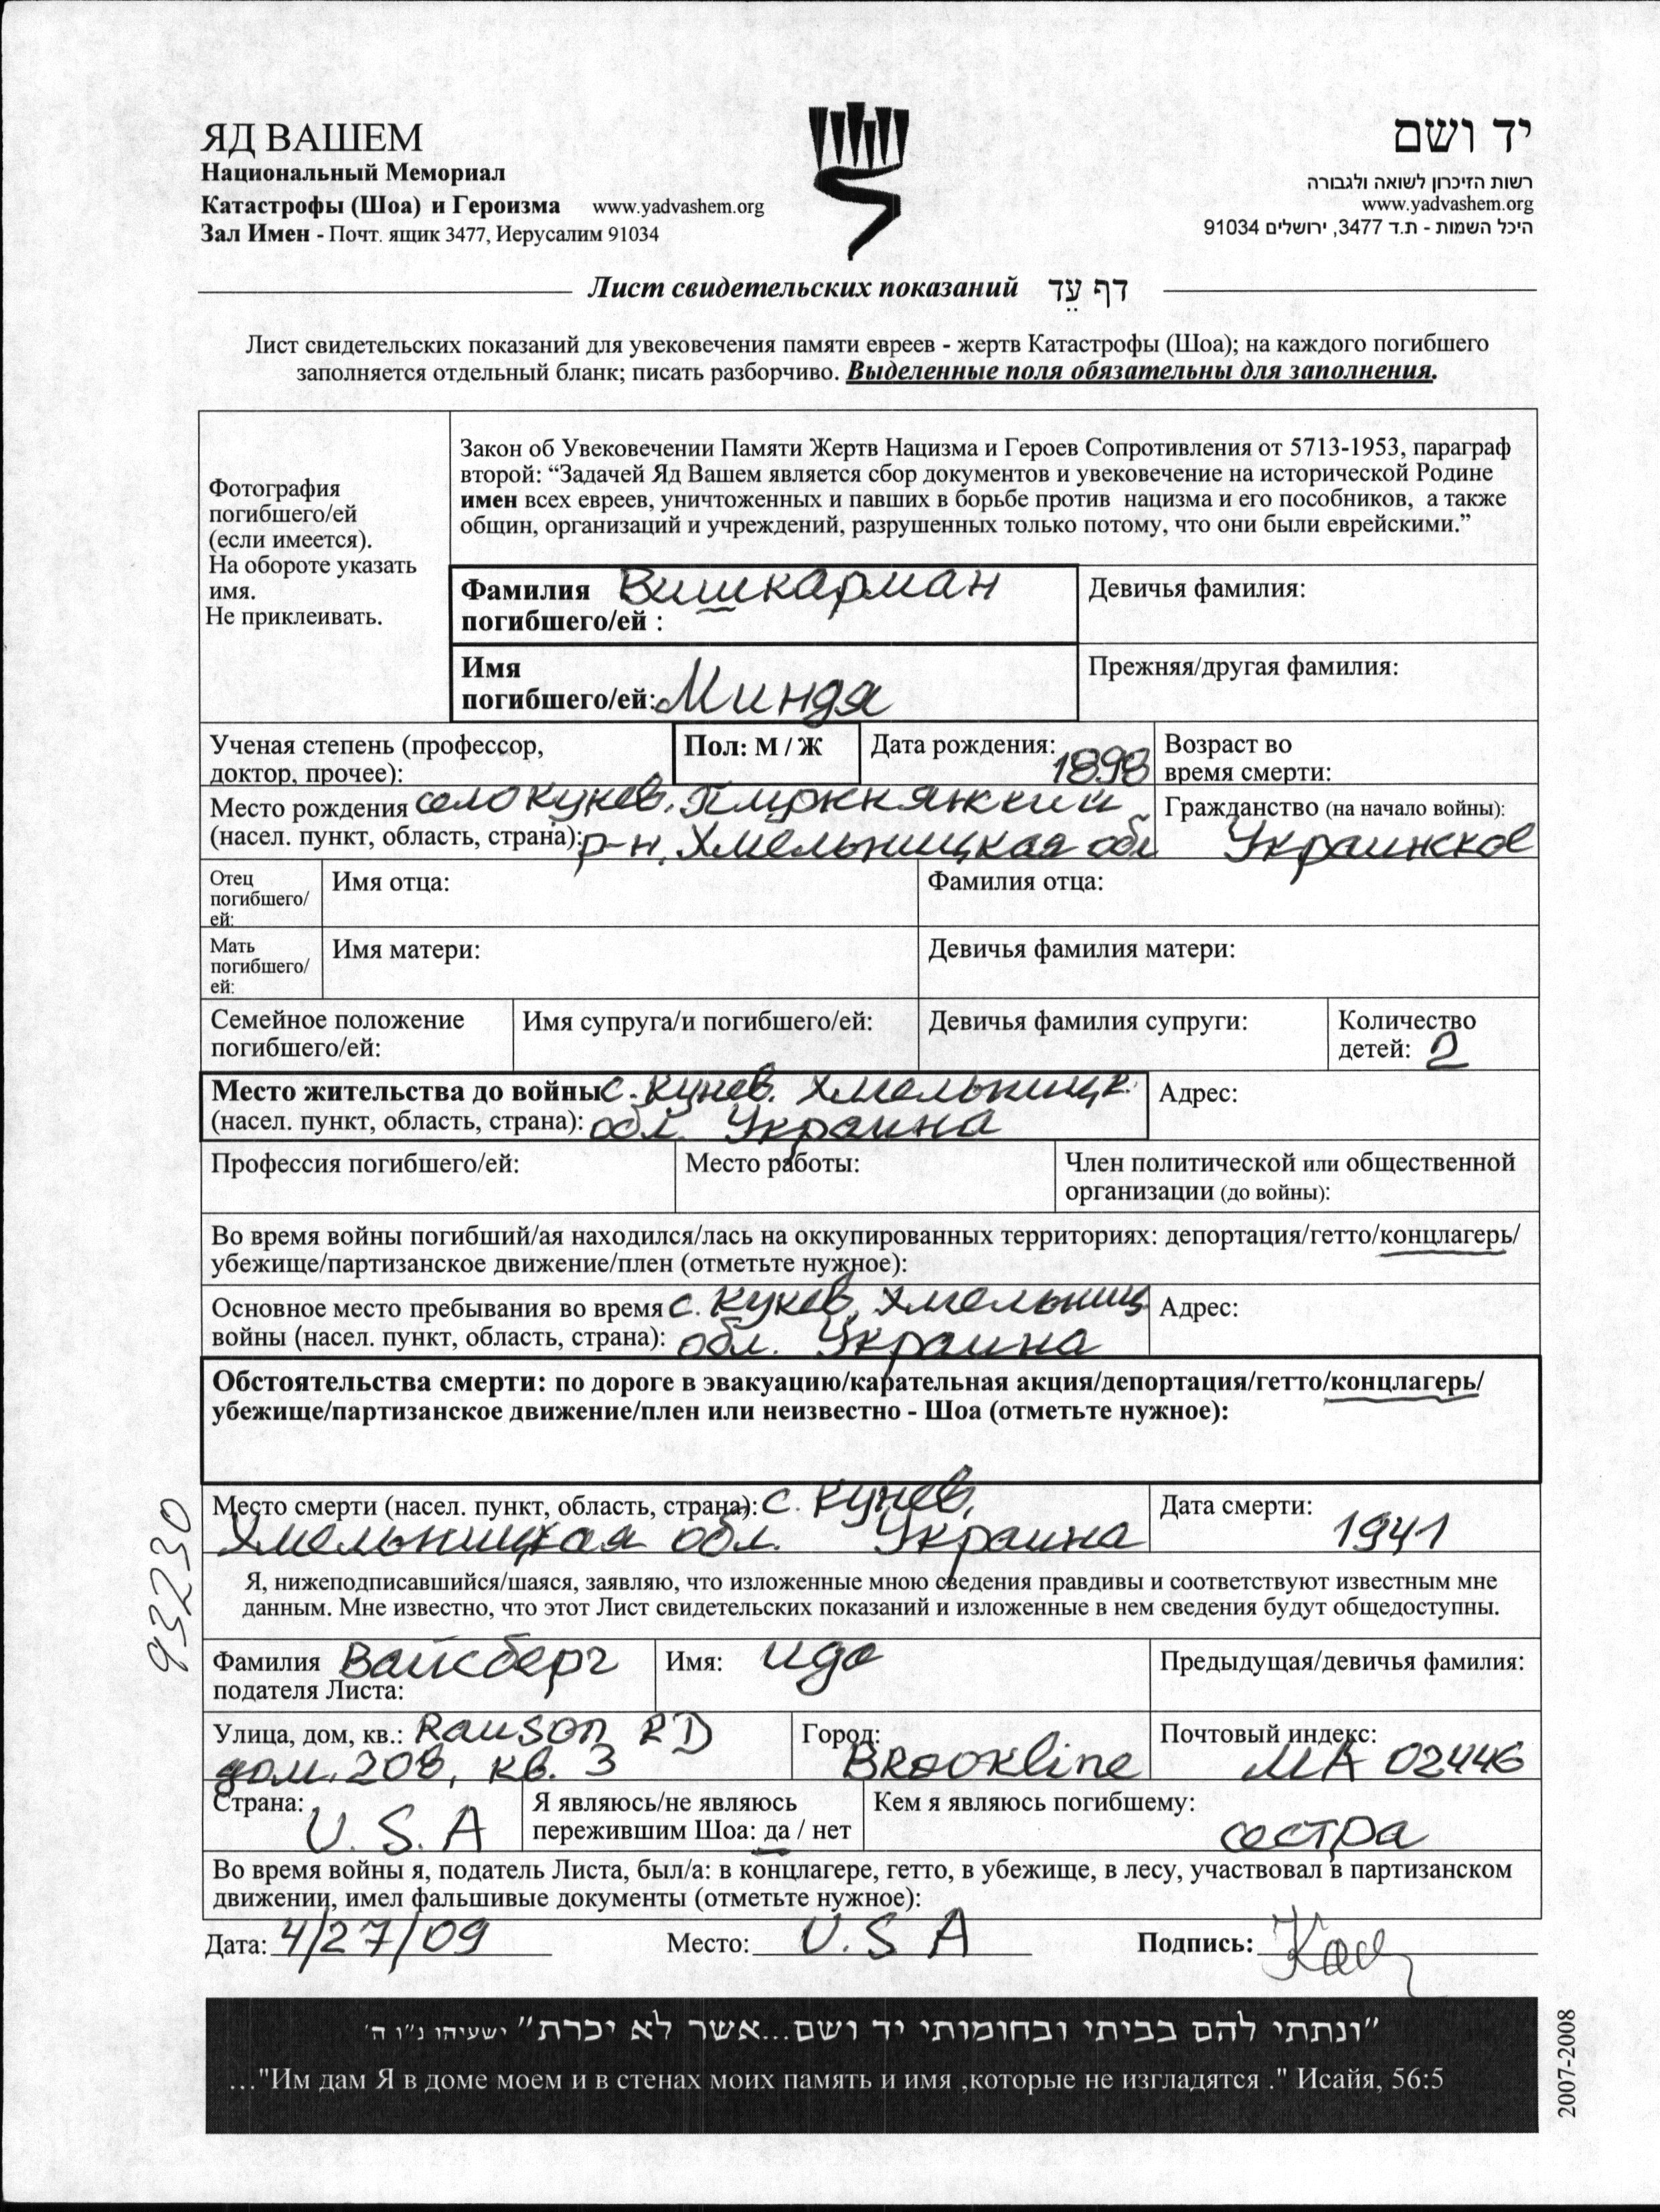 ЯД ВАШЕМ
Национальный Мемориал
Катастрофы (Шоа) и Героизма www.yadvashem.org
Зал Имен - Почт. ящик 3477, Иерусалим 91034
יד ושם
רשות הזיכרון לשואה ולגבורה
www.yadvashem.org
היכל השמות - ת.ד 3477, ירושלים 91034
Лист свидетельских показаний דף עֵד
Лист свидетельских показаний для увековечения памяти евреев - жертв Катастрофы (Шоа); на каждого погибшего
заполняется отдельный бланк; писать разборчиво. Выделенные поля обязательны для заполнения.
Фотография
погибшего/ей
(если имеется).
На обороте указать
имя.
Не приклеивать.
Закон об Увековечении Памяти Жертв Нацизма и Героев Сопротивления от 5713-1953, параграф
второй: “Задачей Яд Вашем является сбор документов и увековечение на исторической Родине
имен всех евреев, уничтоженных и павших в борьбе против нацизма и его пособников, а также
общин, организаций и учреждений, разрушенных только потому, что они были еврейскими.”
Фамилия Вишкарман
погибшего/ей :
Девичья фамилия:
Имя
погибшего/ей: Миндя
Прежняя/другая фамилия:
Ученая степень (профессор,
доктор, прочее):
Пол: М / Ж
Дата рождения: 1898
Возраст во
время смерти:
Место рождения село Кунев,
(насел. пункт, область, страна): р-н, Хмельницкая обл
Гражданство (на начало войны):
Украинское
Отец
погибшего/
ей:
Имя отца:
Фамилия отца:
Мать
погибшего/
ей:
Имя матери:
Девичья фамилия матери:
Семейное положение
погибшего/ей:
Имя супруга/и погибшего/ей:
Девичья фамилия супруги:
Количество
детей: 2
Место жительства до войны с. Кунев. Хмельницк.
(насел. пункт, область, страна): обл. Украина
Адрес:
Профессия погибшего/ей:
Место работы:
Член политической или общественной
организации (до войны):
Во время войны погибший/ая находился/лась на оккупированных территориях: депортация/гетто/концлагерь/
убежище/партизанское движение/плен (отметьте нужное):
Основное место пребывания во время с. Кунев, Хмельниц
войны (насел. пункт, область, страна): обл. Украина
Адрес:
Обстоятельства смерти: по дороге в эвакуацию/карательная акция/депортация/гетто/концлагерь/
убежище/партизанское движение/плен или неизвестно - Шоа (отметьте нужное):
Место смерти (насел. пункт, область, страна): с. Кунев,
Хмельницкая обл. Украина
Дата смерти:
1941
93230
Я, нижеподписавшийся/шаяся, заявляю, что изложенные мною сведения правдивы и соответствуют известным мне
данным. Мне известно, что этот Лист свидетельских показаний и изложенные в нем сведения будут общедоступны.
Фамилия Вайсберг
подателя Листа:
Имя: Ида
Предыдущая/девичья фамилия:
Улица, дом, кв.: Rauson RD
дом. 20в, кв. 3
Город:
Brookline
Почтовый индекс:
MA 02446
Страна:
U. S. A
Я являюсь/не являюсь
пережившим Шоа: да / нет
Кем я являюсь погибшему:
сестра
Во время войны я, податель Листа, был/а: в концлагере, гетто, в убежище, в лесу, участвовал в партизанском
движении, имел фальшивые документы (отметьте нужное):
Дата: 4/27/09 Место: U. S A Подпись:
"ונתתי להם בביתי ובחומותי יד ושם...אשר לא יכרת" ישעיהו נ"ו ה'
..."Им дам Я в доме моем и в стенах моих память и имя ,которые не изгладятся ." Исайя, 56:5
2007-2008